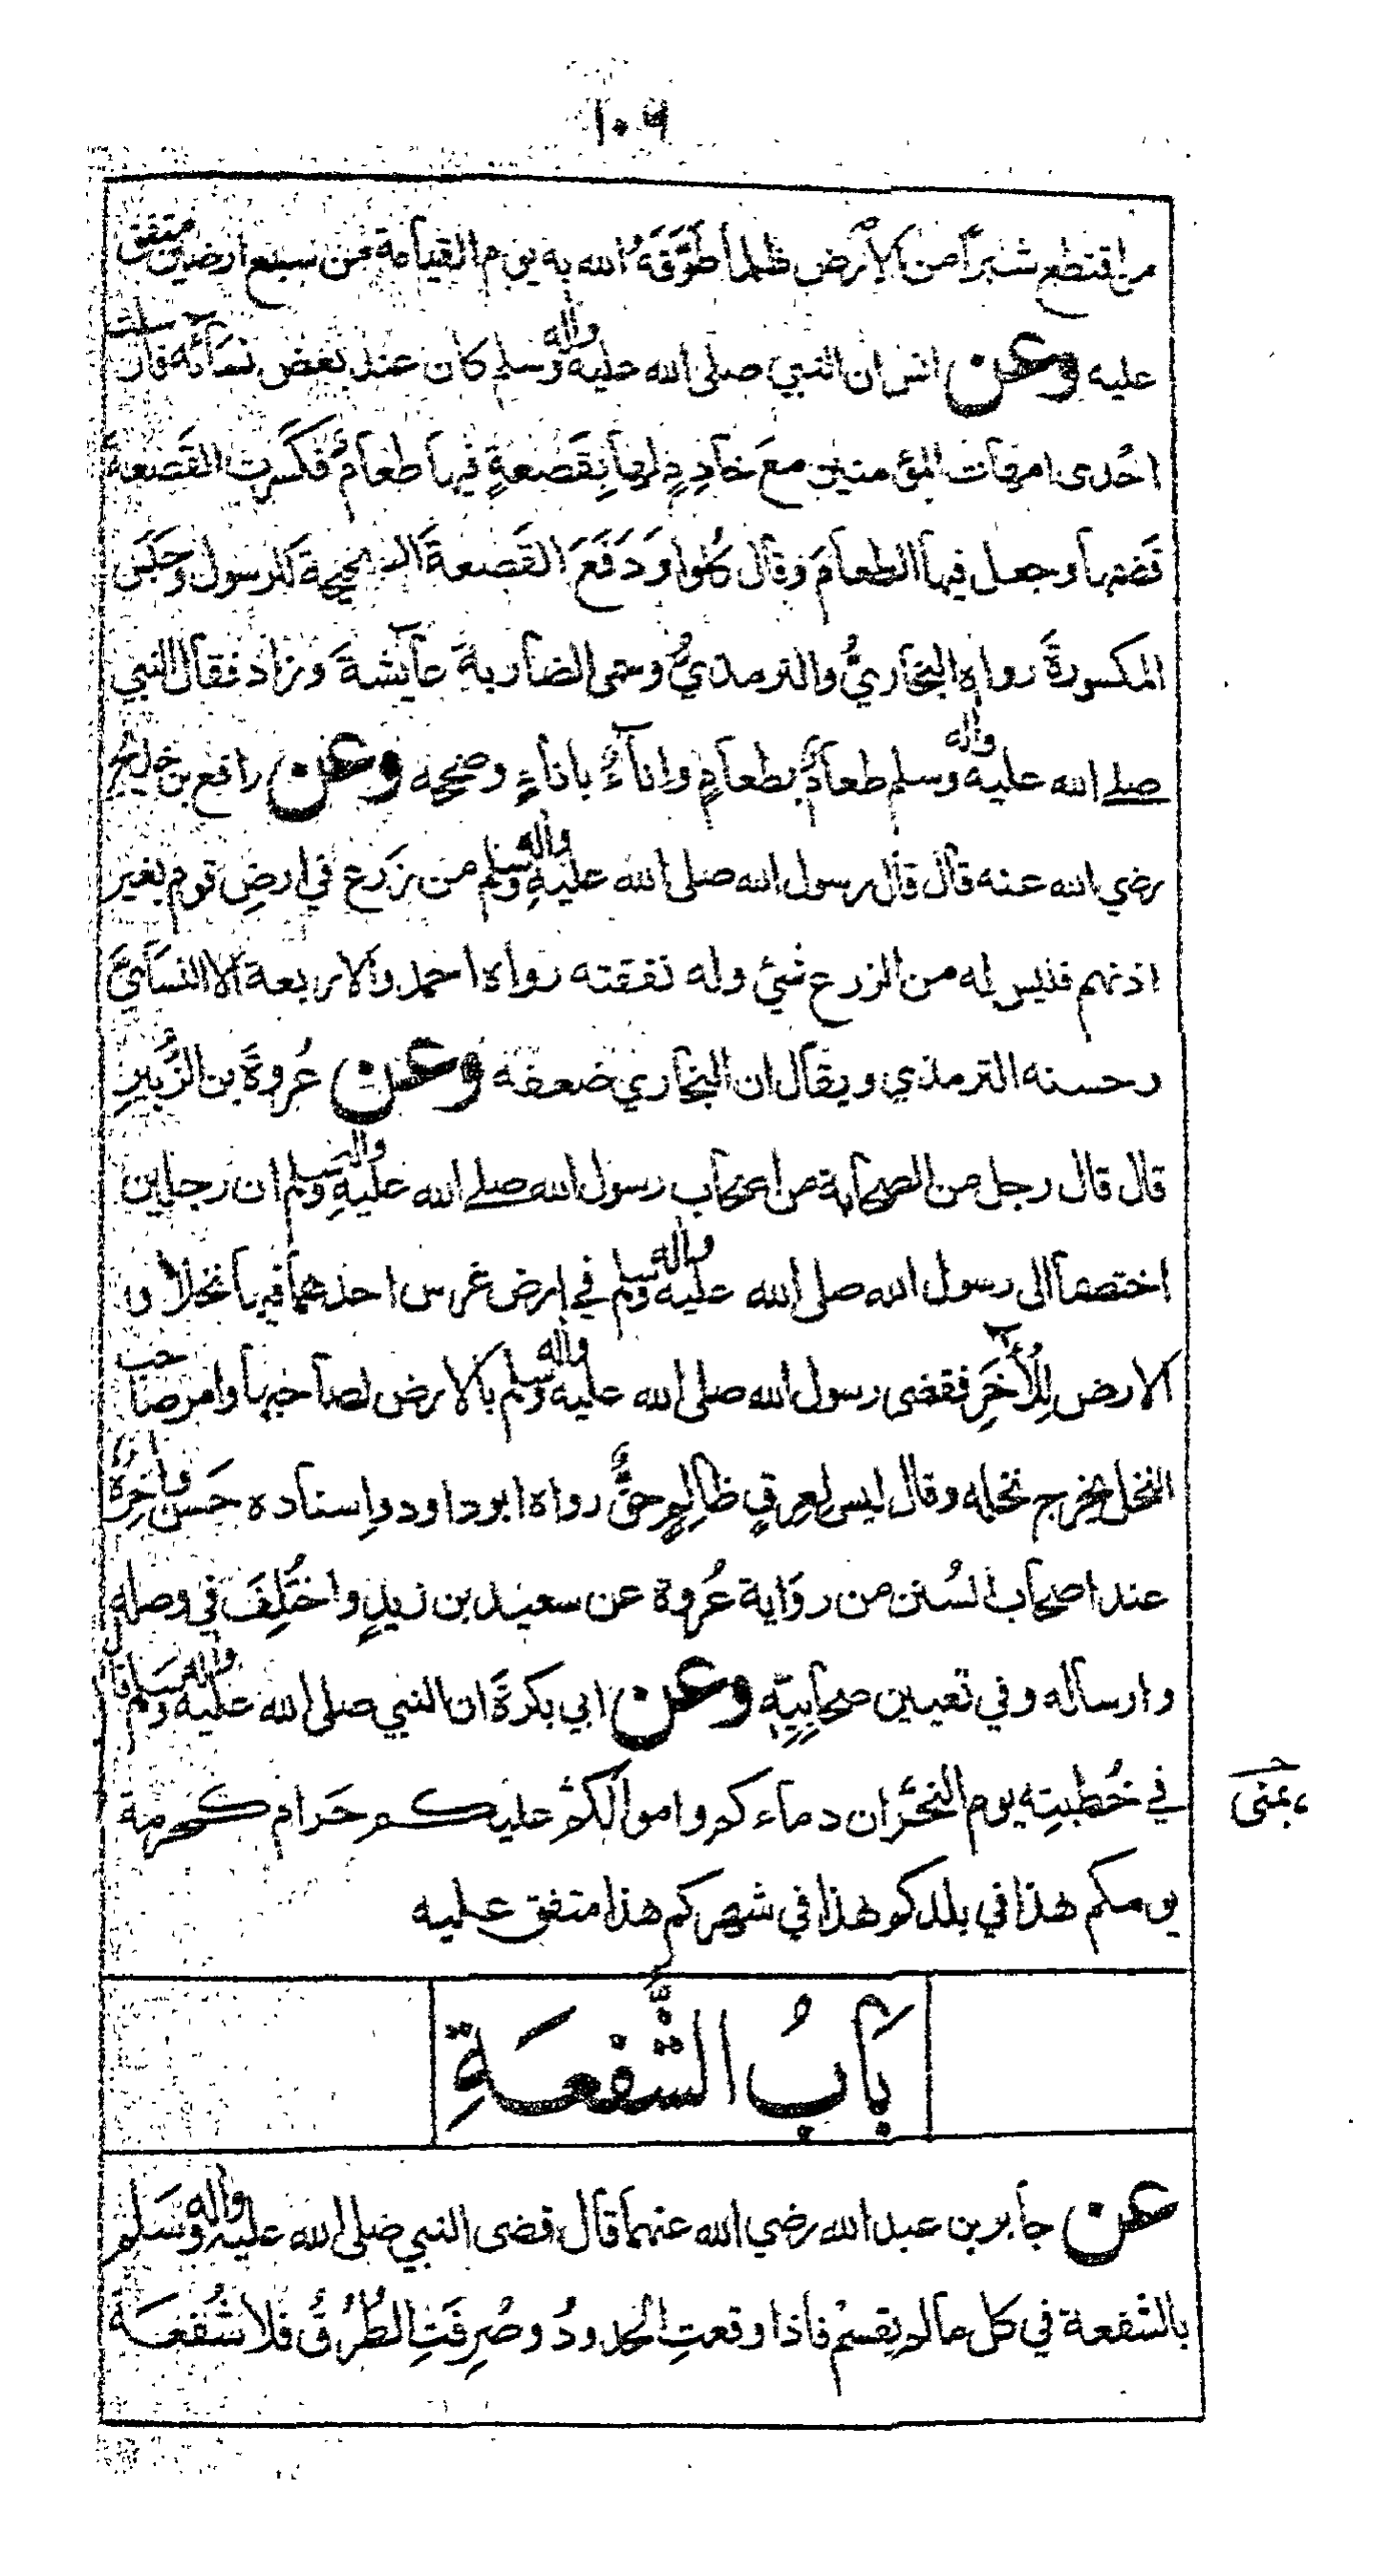 ١٠٩
من اقتطع شبرًا من الأرض ظلمًا طَوَّقَهُ الله به يوم القيامة من سبع ارضين متفق
عليه وعن انس ان النبي صلى الله عليه وآله وسلم كان عند بعض نسائه فارسلت
احْدى امهات المؤمنين مع خادمٍ لها بِقَصْعةٍ فيها طعامٌ فكَسَرت القَصْعةَ
فَضمّها وجعل فيها الطعامَ وقال كُلوا ودَفَعَ القَصعةَ الصحيحة للرسول وحَبَسَ
المكسورةَ رواه البخاريُّ والترمذيُّ وسمى الضاربة عآيشةَ وزاد فقال النبي
صلى الله عليه وآله وسلم طعامٌ بطعامٍ واناءٌ باناءٍ وصححه وعن رافع بن خديج
رضي الله عنه قال قال رسول الله صلى الله عليه وآله وسلم من زَرع في ارضِ قوم بغير
اذنهم فليس له من الزرع شئ وله نفقته رواه احمد والاربعة الا النسائيَّ
وحسنه الترمذي ويقال ان البخاري ضعفه وعن عُروةَ بن الزُّبيرِ
قال قال رجل من الصحابة من اصحاب رسول الله صلى الله عليه وآله وسلم ان رجلين
اختصما الى رسول الله صلى الله عليه وآله وسلم في ارض غرس احدهما فيها نخلا و
الارض لِلْآخَرِ فقضى رسول الله صلى الله عليه وآله وسلم بالارض لصاحبها وامر صاحب
النخل يخرج نخله وقال ليس لعرقٍ ظالمٍ حقٌّ رواه ابوداود واسناده حَسن وآخِرُهُ
عند اصحاب السُنن من رواية عُروة عن سعيد بن زيدٍ واختُلِفَ في وصله
وارساله وفي تعيين صحابِيِّهِ وعن ابي بكرةَ ان النبي صلى الله عليه وآله وسلم قال
في خُطبتِه يوم النحْر ان دماءكم واموالكم عليكم حَرام كحرمة
بمنى
يومكم هذا في بلدكم هذا في شهركم هذا متفق عليه
بَابُ الشُّفعَةِ
عن جابر بن عبد الله رضي الله عنهما قال قضى النبي صلى الله عليه وآله وسَلم
بالشفعة في كل مالم يقسمْ فاذا وقعتِ الحدودُ وصُرِفَتِ الطُرُقُ فلا شُفعَةَ